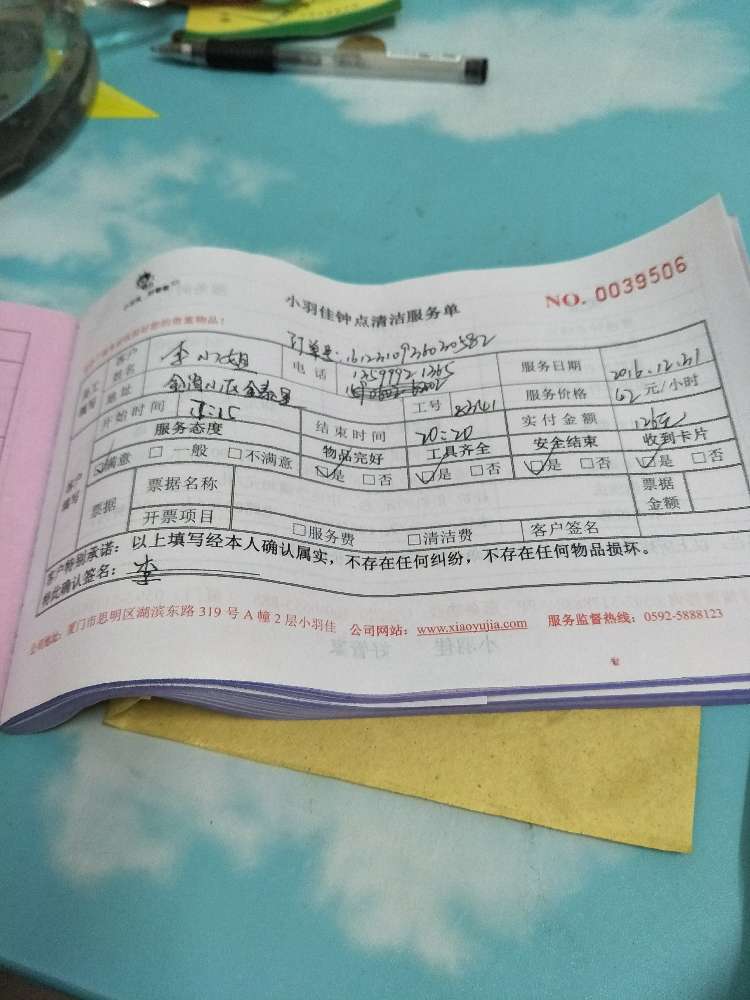 小羽佳钟点清洁服务单
NO. 0039506
您的贵重物品!
订单号:
员工填写
客户姓名 李小姐 电话 13599921265 服务日期 2016.12.31
地址 工号 服务价格 62 元/小时
开始时间 结束时间 20:20 实付金额 126元
客户填写
服务态度 物品完好 工具齐全 安全结束 收到卡片
☑满意 □ 一般 □ 不满意 ☑是 □否 ☑是 □否 ☑是 □否 ☑是 □否
票据 票据名称 票据金额
开票项目 □服务费 □清洁费 客户签名
客户特别承诺:以上填写经本人确认属实,不存在任何纠纷,不存在任何物品损坏。
特此确认签名: 李
公司地址:厦门市思明区湖滨东路 319 号 A 幢 2 层小羽佳 公司网站:www.xiaoyujia.com 服务监督热线:0592-5888123